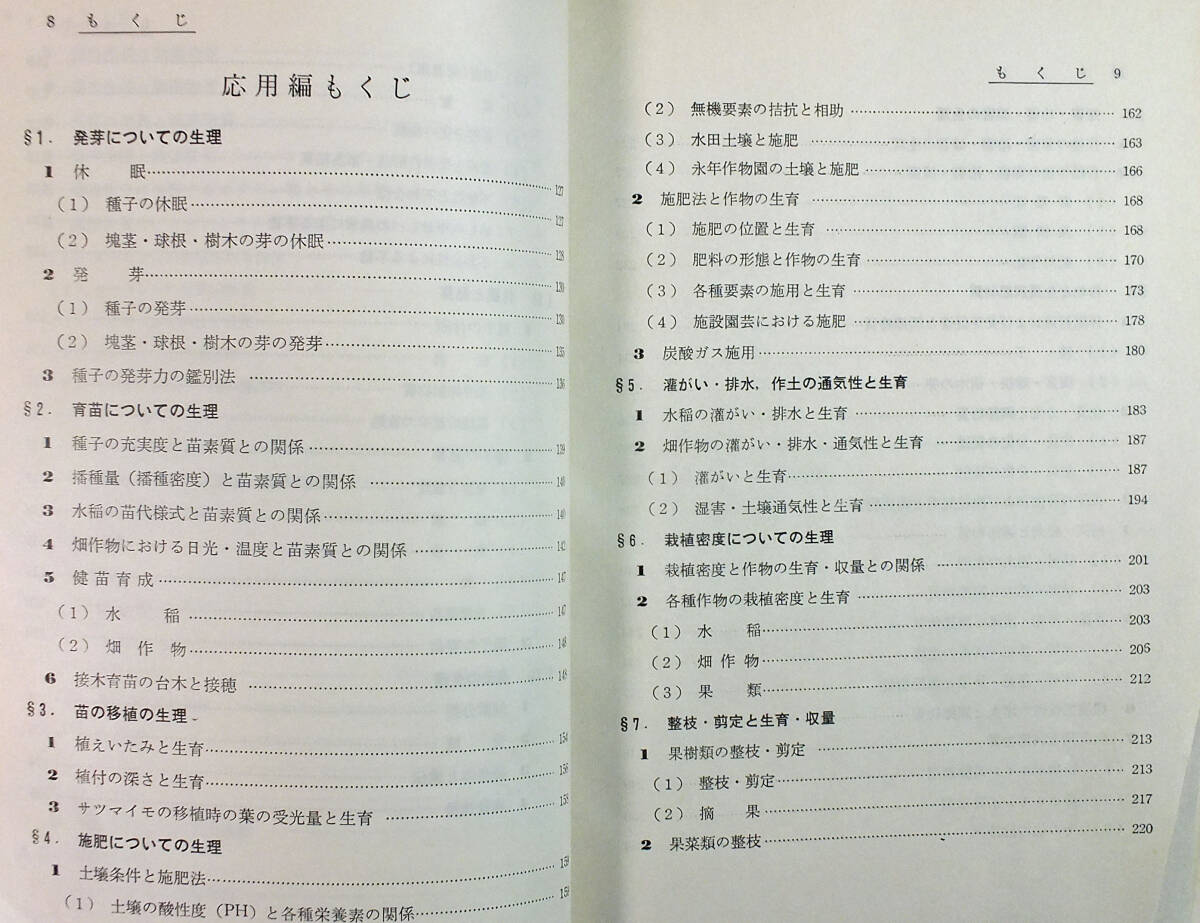 8 もくじ
応用編もくじ
§1. 発芽についての生理
1 休眠……127
(1) 種子の休眠……127
(2) 塊茎・球根・樹木の芽の休眠……128
2 発芽……130
(1) 種子の発芽……130
(2) 塊茎・球根・樹木の芽の発芽……135
3 種子の発芽力の鑑別法……136
§2. 育苗についての生理
1 種子の充実度と苗素質との関係……139
2 播種量(播種密度)と苗素質との関係……140
3 水稲の苗代様式と苗素質との関係……140
4 畑作物における日光・温度と苗素質との関係……142
5 健苗育成……147
(1) 水稲……147
(2) 畑作物……148
6 接木育苗の台木と接穂……148
§3. 苗の移植の生理
1 植えいたみと生育……154
2 植付の深さと生育……156
3 サツマイモの移植時の葉の受光量と生育……158
§4. 施肥についての生理
1 土壌条件と施肥法……159
(1) 土壌の酸性度(PH)と各種栄養素の関係……159
もくじ 9
(2) 無機要素の拮抗と相助……162
(3) 水田土壌と施肥……163
(4) 永年作物園の土壌と施肥……166
2 施肥法と作物の生育……168
(1) 施肥の位置と生育……168
(2) 肥料の形態と作物の生育……170
(3) 各種要素の施用と生育……173
(4) 施設園芸における施肥……178
3 炭酸ガス施用……180
§5. 灌がい・排水,作土の通気性と生育
1 水稲の灌がい・排水と生育……183
2 畑作物の灌がい・排水・通気性と生育……187
(1) 灌がいと生育……187
(2) 湿害・土壌通気性と生育……194
§6. 栽植密度についての生理
1 栽植密度と作物の生育・収量との関係……201
2 各種作物の栽植密度と生育……203
(1) 水稲……203
(2) 畑作物……206
(3) 果類……212
§7. 整枝・剪定と生育・収量
1 果樹類の整枝・剪定……213
(1) 整枝・剪定……213
(2) 摘果……217
2 果菜類の整枝……220